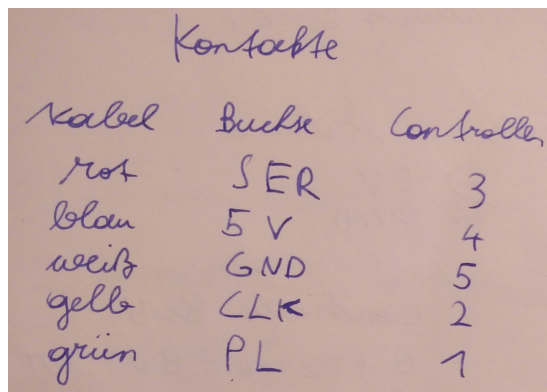 Kontakte
Kabel Buchse Controller
rot SER 3
blau 5 V 4
weiß GND 5
gelb CLK 2
grün PL 1